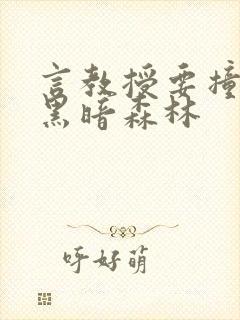 言教授要撞
黑暗森林
呼好萌